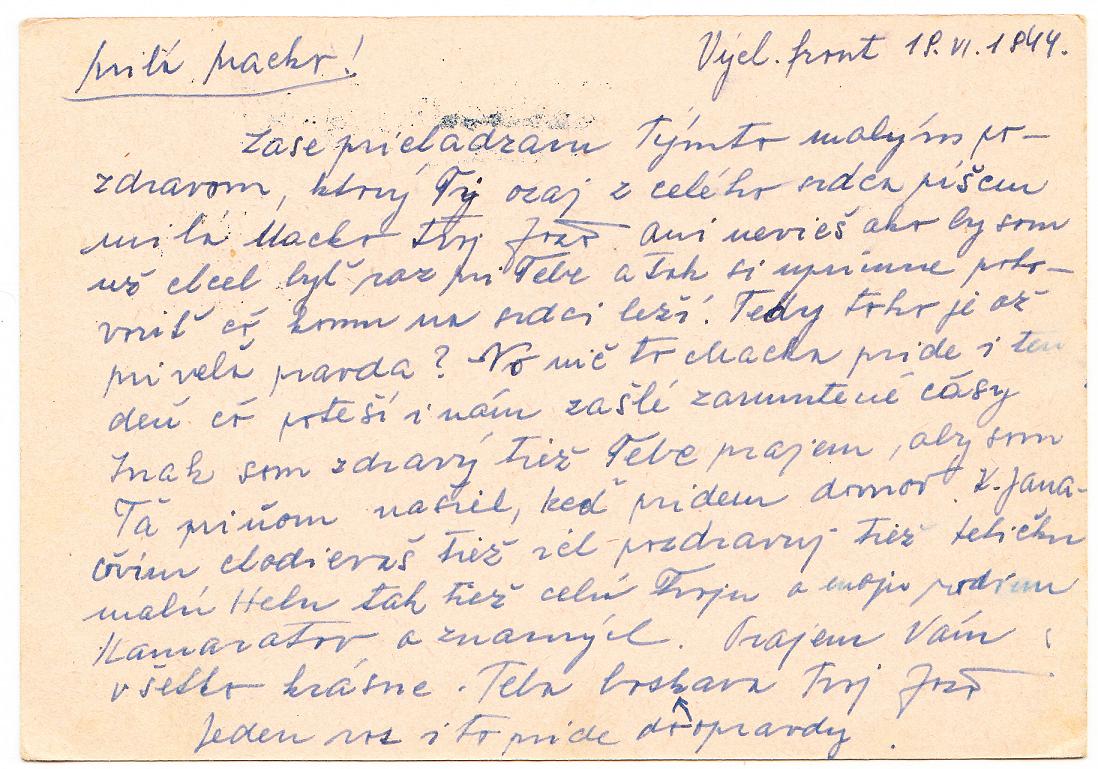 milá Macko! Vých. front 18. VI. 1944.
Zase prichádzam Týmto malým po-
zdravom, ktorý Tý ozaj z celého srdca píšem
milá Macko Tvoj Jožo Ani nevieš ako by som
už chcel byť raz pri Tebe a tak si uprimne poho-
voriť čo komu na srdci leží. Tedy toho je až
privela pravda? No nič to Macka pride i ten
deň čo poteší i nám zašlé zarmutené časy
Inak som zdravý tiež Tebe prajem, aby som
Ťa pri ňom našiel, keď pridem domov. K. Jana-
čovim chodievaš tiež ich pozdravuj tiež tetičku
malú Helu tak tiež celú Tvoju a moju rodinu
Kamaratov a znamých. Prajem Vám
všetko krásne. Teba boskava Tvoj Jožo
Jeden raz i to pride doopravdy.